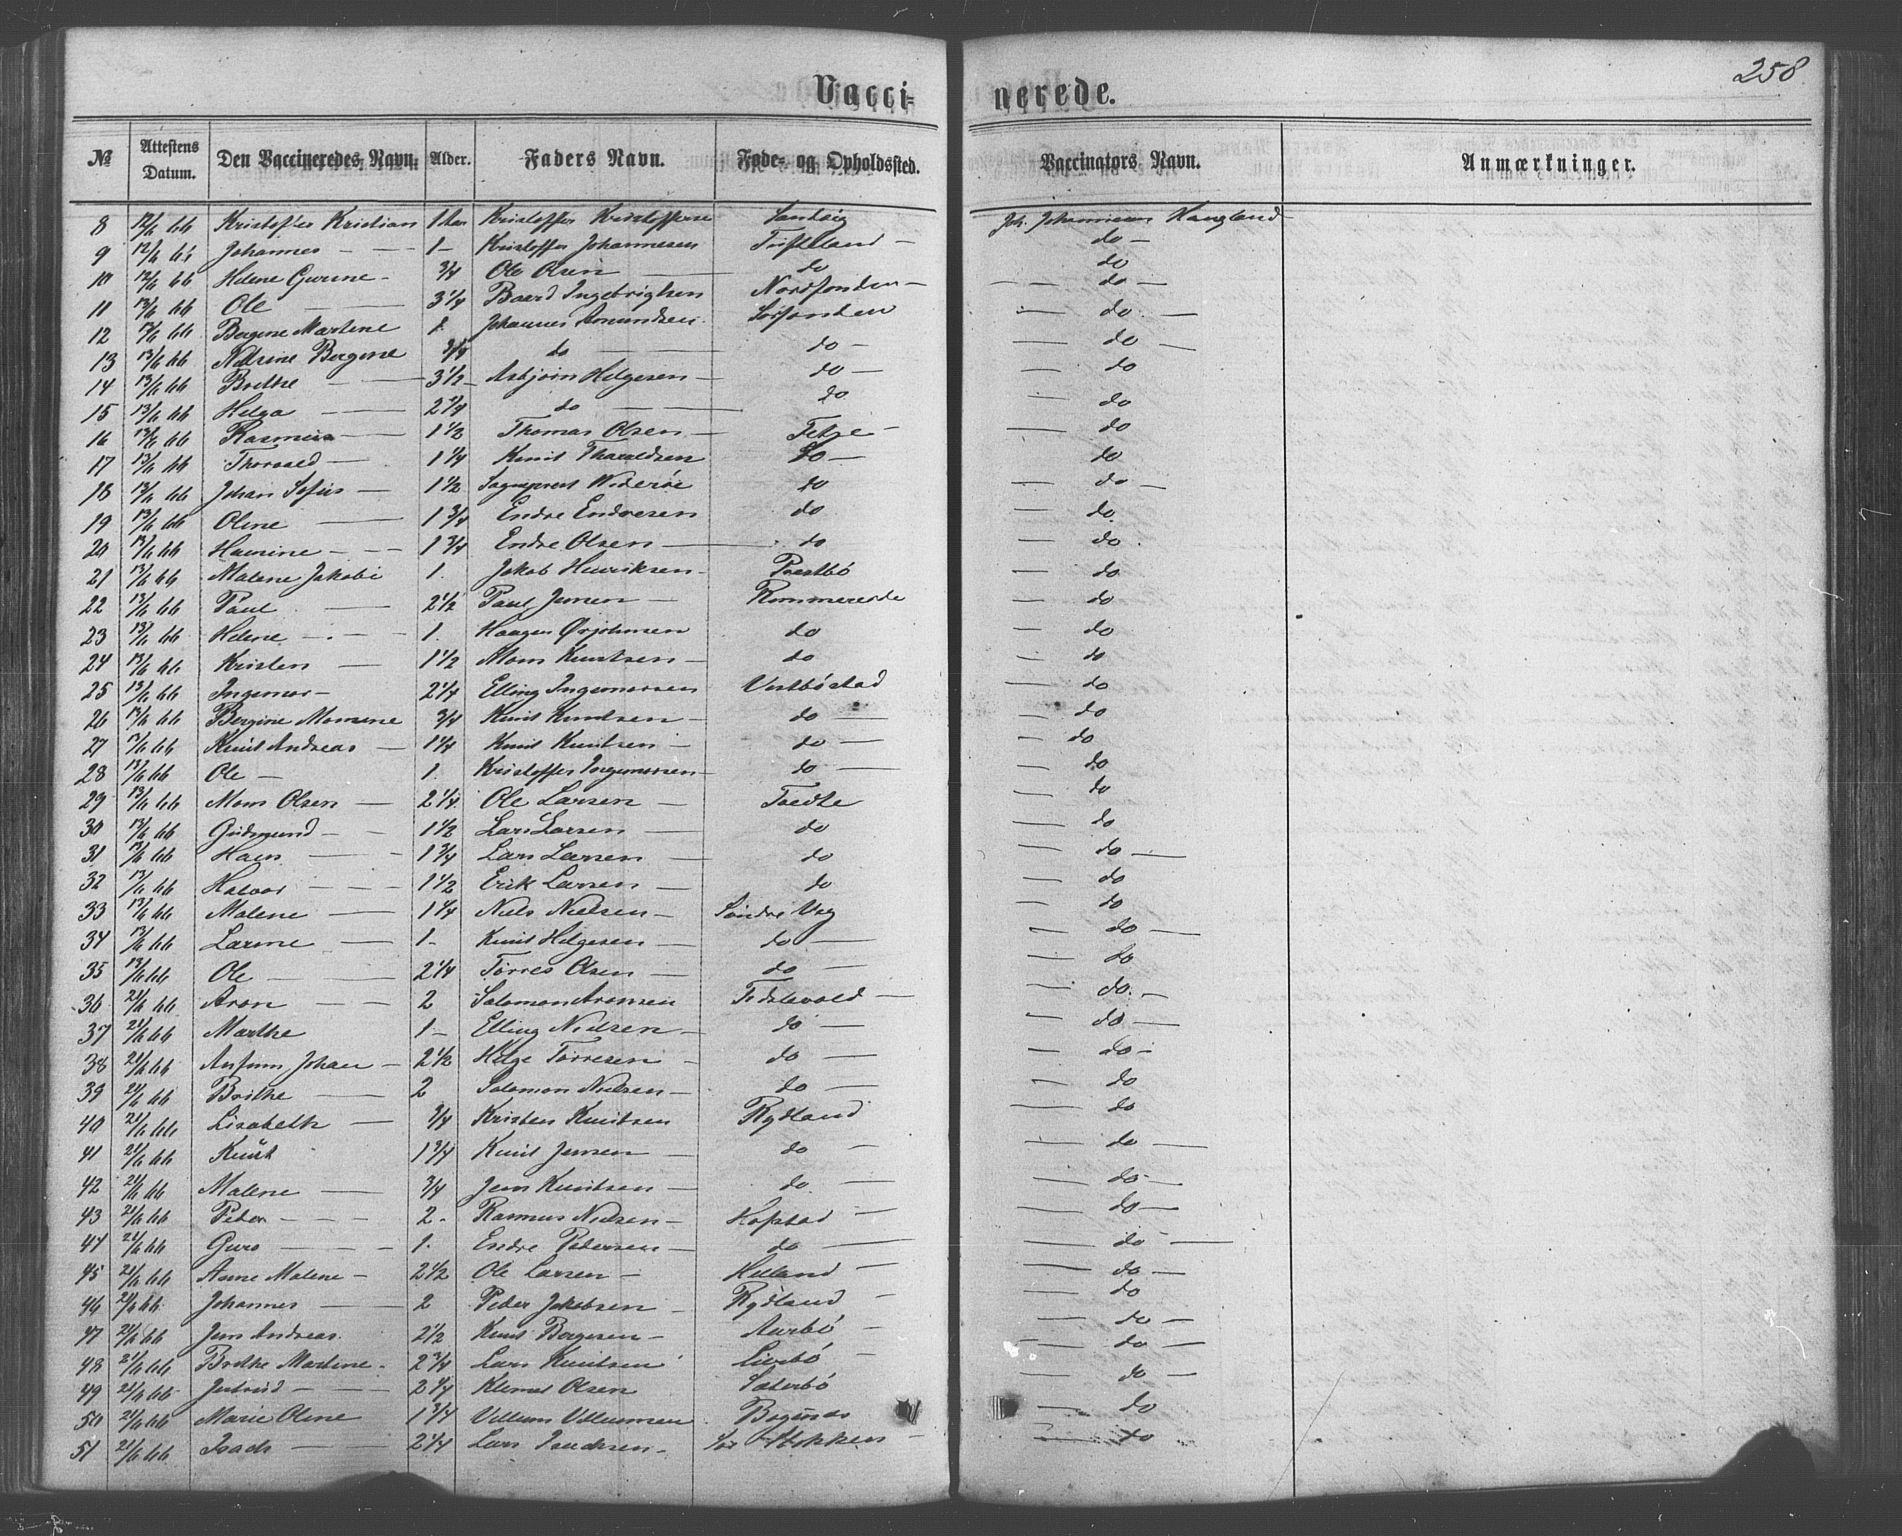 258
Vacci-nerede.
№ Attestens Datum. Den Vaccineredes Navn. Alder. Faders Navn. Føde- og Opholdssted. Vaccinators Navn. Anmærkninger.
8 12/6 66 Kristofer Kristian 1 Kristoffer Kristoffersen Sandvig Joh. Johannesen Haugland
9 12/6 66 Johannes 1 - Kristoffer Johannesen Tufteland - do -
10 12/6 66 Helene Gurine - 3/4 Ole Olsen do do
11 13/6 66 Ole 3 1/4 Baard Ingebrigtsen Nordfonden - do -
12 13/6 66 Bergine Martine 1. Johannes Amundsen Sørfonden do -
13 13/6 66 Bergine 3/4 do do - do -
14 13/6 66 Brithe 3 1/2 - Asbjørn Helgesen - do - do
15 13/6 66 Helga 2 1/4 do do do
16 13/6 66 Rasmus 1 1/2 Thomas Olsen - Fitje - do
17 13/6 66 Thorvald - 1 1/4 Knut Tharaldsen do - do
18 13/6 66 Johan Sofus - 1 1/2 Sogneprest Widerøe do do -
19 13/6 66 Oline 1 3/4 Endre Endresen do do
20 13/6 66 Hansine - 1 3/4 Endre Olsen do do
21 13/6 66 Malene Jakobi 1. Jakob Henriksen - Prestbø do
22 13/6 66 Paul 2 1/2 Paul Jensen - Rommerede do
23 13/6 66 Helene 1. Haagen Ørjohnsen do do
24 13/6 66 Kristen - 1 1/2 Mons Knutsen - do do
25 13/6 66 Ingemor - 2 1/4 Elling Ingemorsen Vestbøstad do
26 13/6 66 Bergine Monsine 3/4 Knut Knutsen - do do
27 13/6 66 Knut Andreas - 1 1/4 Knut Knutsen - do do
28 13/6 66 Ole - 1. Kristoffer Ingemorsen - do do
29 13/6 66 Mons Olsen - 2 1/4 Ole Larsen - Tvedte do
30 13/6 66 Gudmund - 1 1/2 Lars Larsen do do
31 13/6 66 Hans 1 3/4 Lars Larsen do do -
32 13/6 66 Halvor 1 1/2 Erik Larsen - do do
33 13/6 66 Malene 1 1/4 Niels Nielsen - Søndre Vog do
34 13/6 66 Larine 1 - Knut Helgesen - do do -
35 13/6 66 Ole 2 1/4 Torres Olsen do do
36 21/6 66 Aron 2 Salomon Aronsen do. -
37 21/6 66 Marthe 1 - Elling Nielsen - do do -
38 21/6 66 Johan - 2 1/2 Helge Torresen - do do -
39 21/6 66 Brithe 2 Salomon Nielsen - do do
40 21/6 66 Lisabeth 3/4 Kristen Knutsen Rydland do
41 21/6 66 Knut 1 3/4 Knut Jensen do - do -
42 21/6 66 Malene 3/4 Jens Knutsen - do - do -
43 21/6 66 Peder 2 - Rasmus Nielsen - Hofstad do -
44 21/6 66 Guro 1. Endre Pedersen - do do -
45 21/6 66 Anne Malene - 2 1/2 Ole Larsen - Helland do -
46 21/6 66 Johannes 2 Peder Jakobsen - Rydland do
47 21/6 66 Jens Andreas 2 1/2 Knut Børgesen - Aurbø do -
48 21/6 66 Brithe Martine - 2 3/4 Lars Knutsen do -
49 21/6 66 Jertrud 2 1/4 Klemet Olsen Sæterbø do -
50 21/6 66 Marie Oline 1 3/4 Villum Villumsen Bognøs do
51 21/6 66 Isach 2 1/4 Lars Isachsen - do